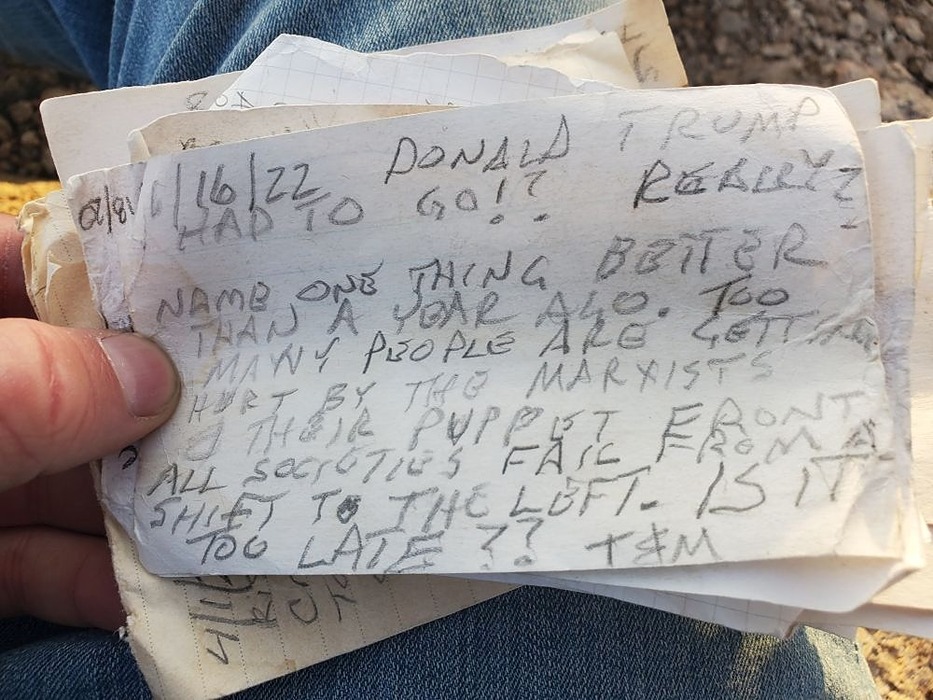 6/16/22 DONALD TRUMP
HAD TO GO!? REALLY?
NAME ONE THING BETTER
THAN A YEAR AGO. TOO
MANY PEOPLE ARE GETTING
HURT BY THE MARXISTS
& THEIR PUPPET FRONT
ALL SOCIETIES FAIL FROM A
SHIFT TO THE LEFT. IS IT
TOO LATE ?? T&M